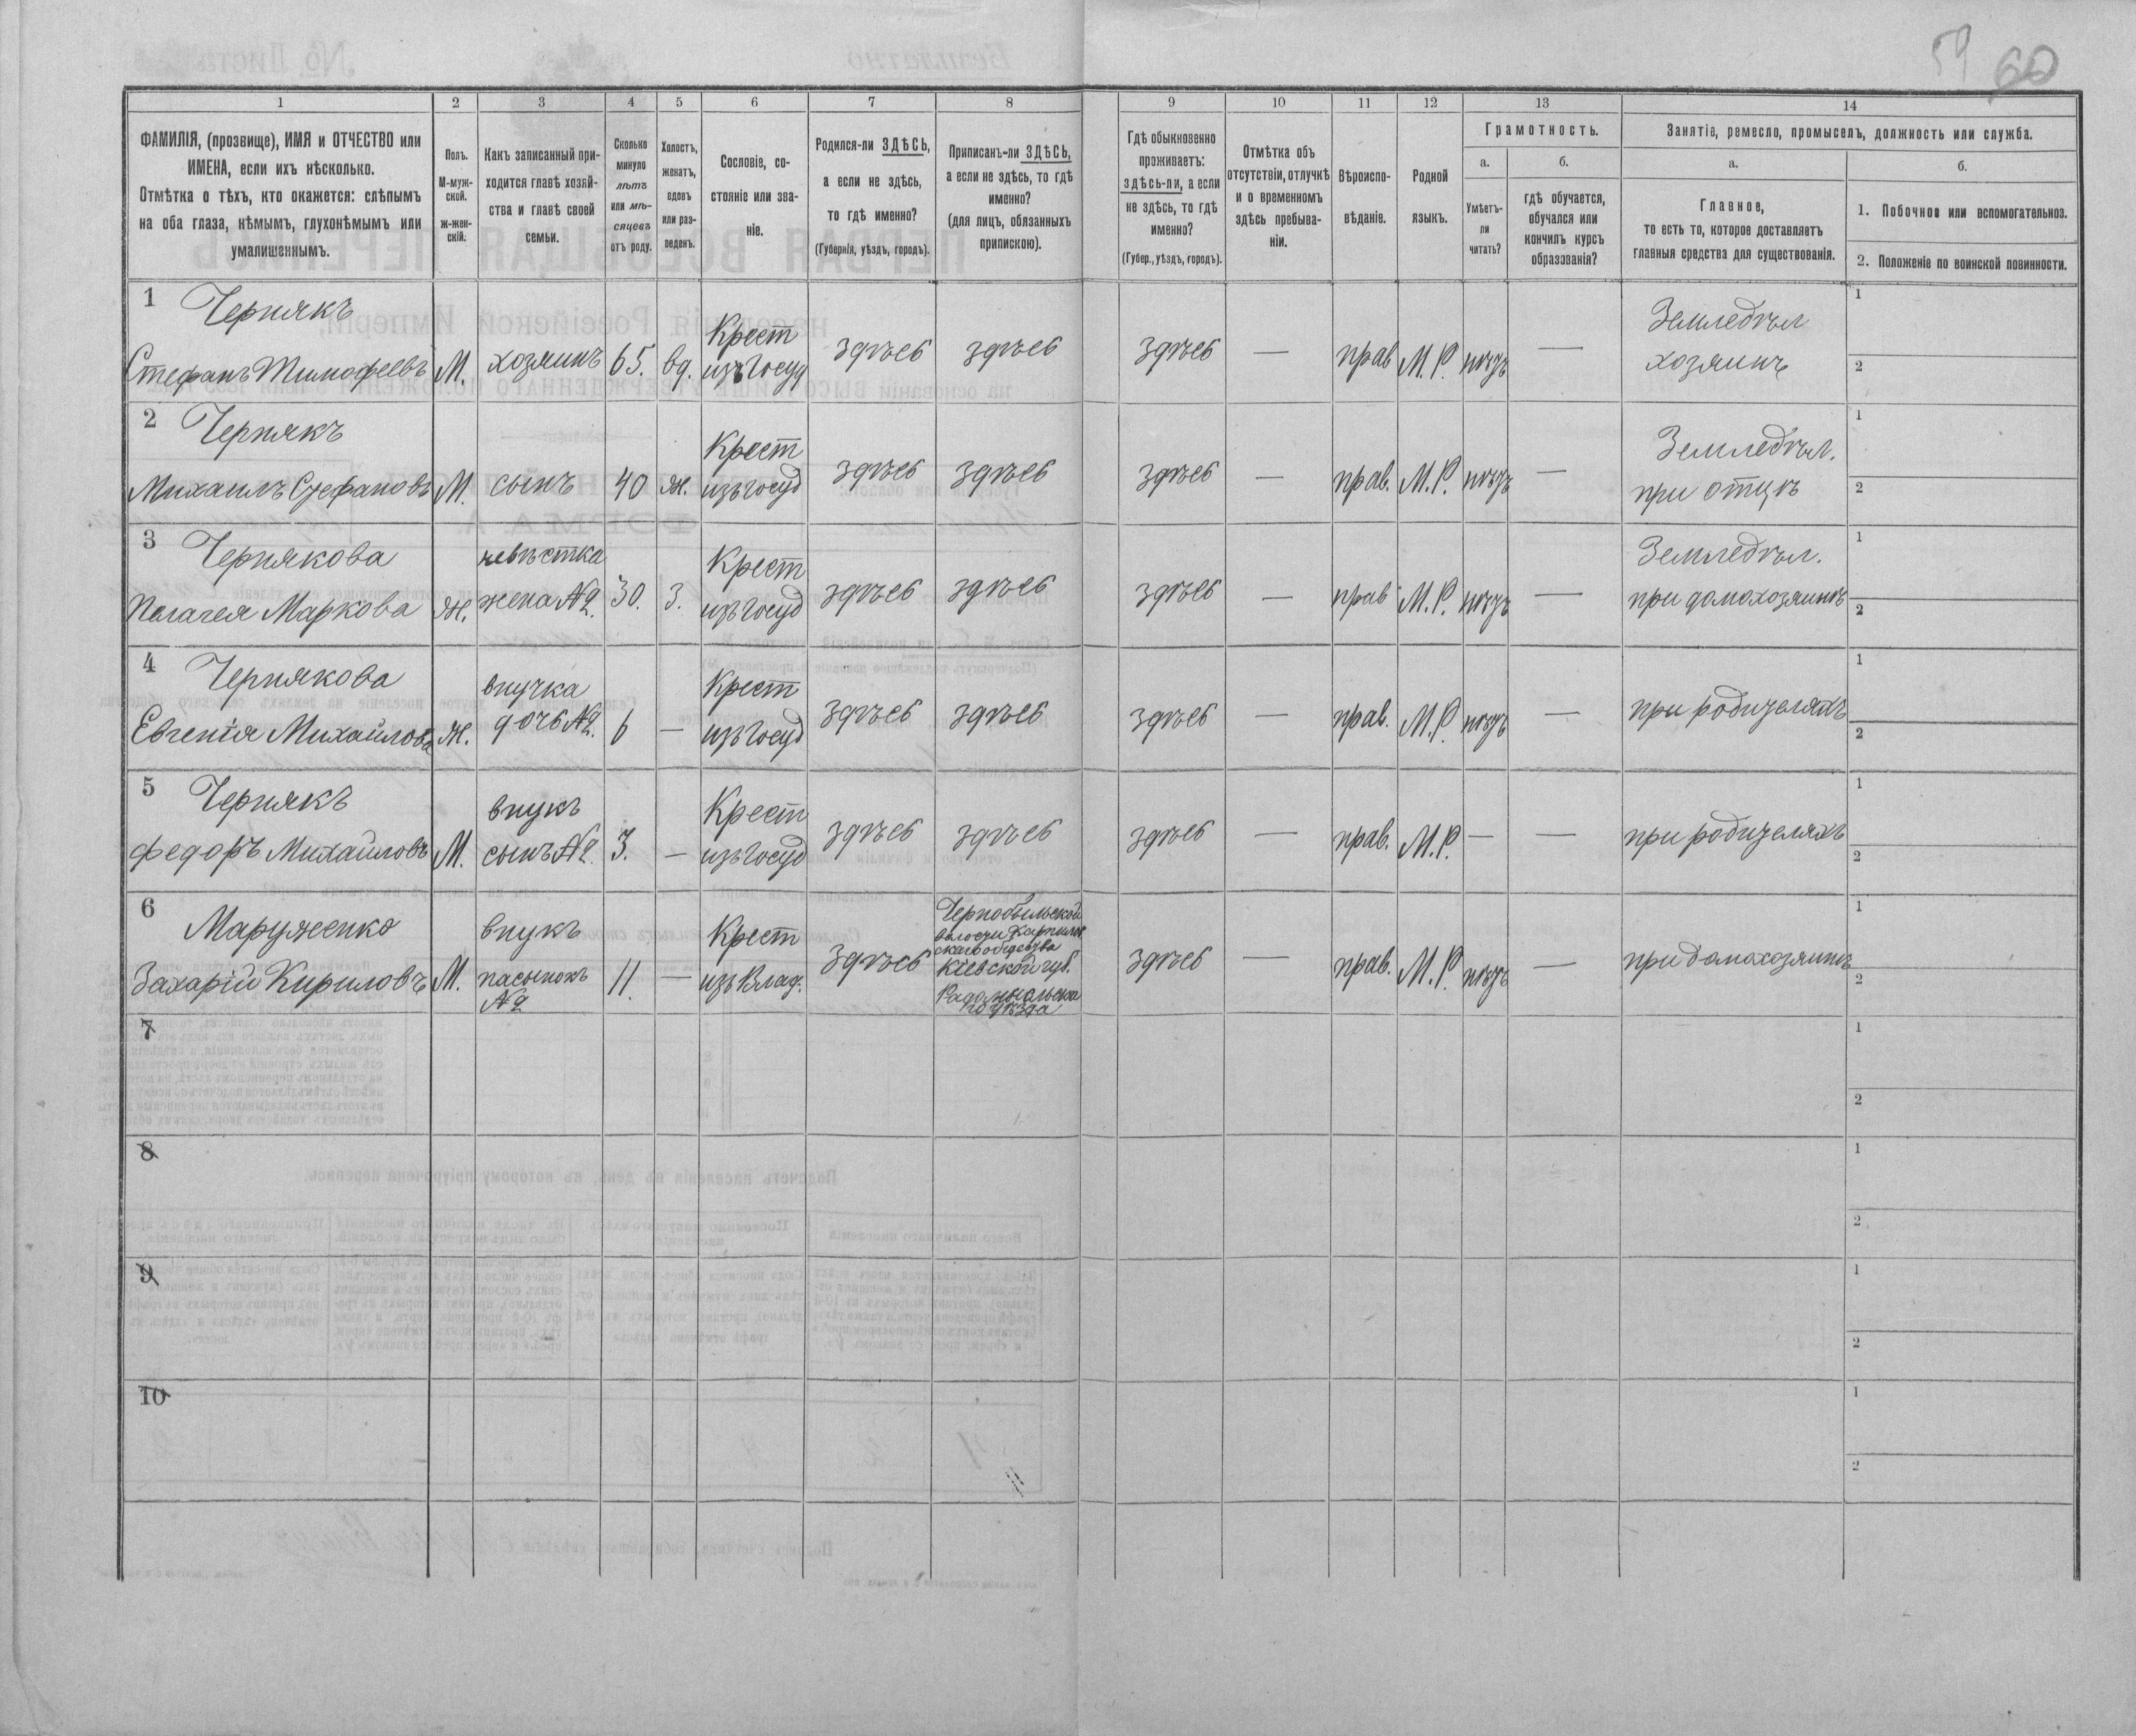 59 60
1 2 3 4 5 6 7 8 9 10 11 12 13 14
ФАМИЛІЯ, (прозвище), ИМЯ и ОТЧЕСТВО или
ИМЕНА, если ихъ нѣсколько.
Отмѣтка о тѣхъ, кто окажется: слѣпымъ
на оба глаза, нѣмымъ, глухонѣмымъ или
умалишеннымъ.
Полъ.
М-муж-
ской.
Ж-жен-
скій.
Какъ записанный при-
ходится главѣ хозяй-
ства и главѣ своей
семьи.
Сколько
минуло
лѣтъ
или мѣ-
сяцевъ
отъ роду.
Холостъ,
женатъ,
вдовъ
или раз-
веденъ.
Сословіе, со-
стояніе или зва-
ніе.
Родился-ли ЗДѢСЬ,
а если не здѣсь,
то гдѣ именно?
(Губернія, уѣздъ, городъ).
Приписанъ-ли ЗДѢСЬ,
а если не здѣсь, то гдѣ
именно?
(для лицъ, обязанныхъ
припискою).
Гдѣ обыкновенно
проживаетъ:
здѣсь-ли, а если
не здѣсь, то гдѣ
именно?
(Губер., уѣздъ, городъ).
Отмѣтка объ
отсутствіи, отлучкѣ
и о временномъ
здѣсь пребыва-
ніи.
Вѣроиспо-
вѣданіе.
Родной
языкъ.
Грамотность.
а.
Умѣетъ-
ли
читать?
б.
гдѣ обучается,
обучался или
кончилъ курсъ
образованія?
Занятіе, ремесло, промыселъ, должность или служба.
а.
Главное,
то есть то, которое доставляетъ
главныя средства для существованія.
б.
1. Побочное или вспомогательное.
2. Положеніе по воинской повинности.
1 Чернякъ Крест Земледѣл 1
Стефанъ Тимофеевъ М. хозяинъ 65. вд. изъ Госуд здѣсь здѣсь здѣсь — прав М.Р. нѣтъ — хозяинъ 2
2 Чернякъ Крест Земледѣл. 1
Михаилъ Стефановъ М. сынъ 40 ж. изъ Госуд здѣсь здѣсь здѣсь — прав. М.Р. нѣтъ — при отцѣ 2
3 Чернякова невѣстка Крест Земледѣл. 1
Пелагея Маркова Ж. жена №2. 30. З. изъ Госуд здѣсь здѣсь здѣсь — прав М.Р. нѣтъ — при домохозяинѣ 2
4 Чернякова внучка Крест 1
Евгенія Михайлова Ж. дочь №2. 6 — изъ Госуд здѣсь здѣсь здѣсь — прав. М.Р. нѣтъ — при родителяхъ 2
5 Чернякъ внукъ Крест 1
Федоръ Михайловъ М. сынъ №2. 3. — изъ Госуд здѣсь здѣсь здѣсь — прав. М.Р. — — при родителяхъ 2
6 Маруженко внукъ Крест Чернобыльской 1
Захарій Кириловъ М. пасынокъ 11. — изъ Влад. здѣсь здѣсь — прав. М.Р. нѣтъ — при домохозяинѣ 2
№2
волости Карпилов
скаго общества
Кіевской губ.
Радомысльска
го уѣзда
7 1
2
8 1
2
9 1
2
10 1
2